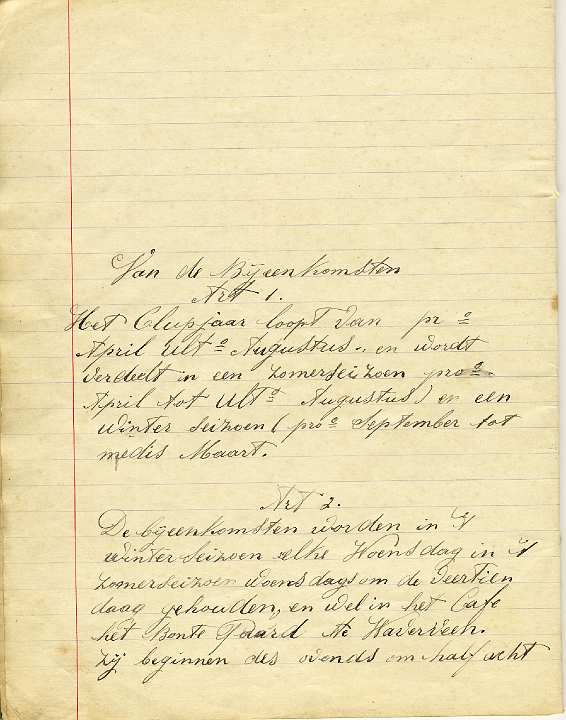 Van de Bijeenkomsten
Art 1.
Het Clupjaar loopt van pr º
April Ult º Augustus. en wordt
verdeelt in een zomerseizoen pro º
April tot Ult º Augustus) en een
winter seizoen (pro º September tot
medis Maart.
Art 2.
De bijeenkomsten worden in 't
winterseizoen elke Woensdag in 't
zomerseizoen woensdags om de veertien
daag gehouden, en wel in het Cafe
het Bonte Paard te Haverveen.
zij beginnen des avonds om half acht